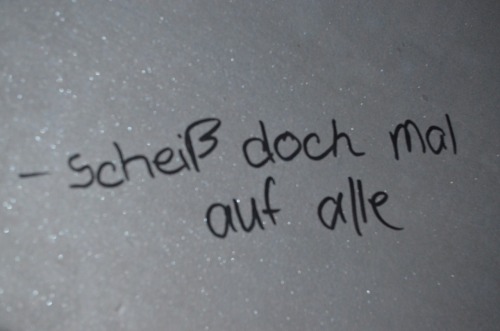 - scheiß doch mal
auf alle